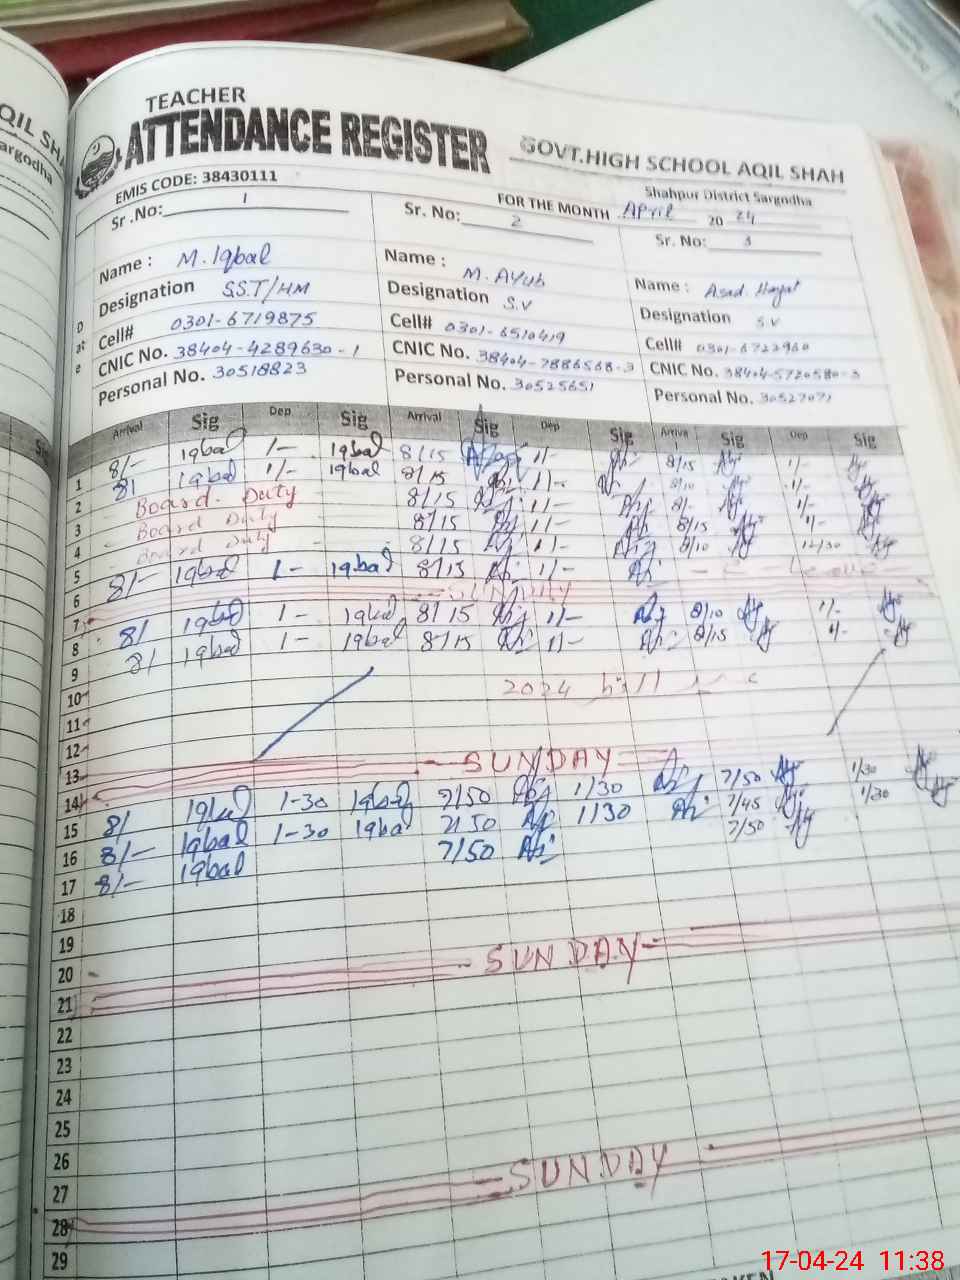 TEACHER
ATTENDANCE REGISTER
GOVT.HIGH SCHOOL AQIL SHAH
EMIS CODE: 38430111
Shahpur District Sargodha
FOR THE MONTH April 20 24
Sr .No: 1 Sr. No: 2 Sr. No: 3
Name : M. Iqbal Name : M. Ayub Name : Asad Hayat
Designation S.S.T/HM Designation S.V Designation S.V
Cell# 0301-6719875 Cell# 0301-6510419 Cell# 0301-6722960
CNIC No. 38404-4289630-1 CNIC No. 38404-7886568-3 CNIC No. 38404-5720580-3
Personal No. 30518823 Personal No. 30525651 Personal No. 30527071
Date
Arrival Sig Dep Sig Arrival Sig Dep Sig Arrive Sig Dep Sig
1 8/- Iqbal 1/- Iqbal 8/15 1/- 8/15 1/-
2 8/ Iqbal 1/- Iqbal 8/15 1/- 8/10 1/-
3 Board Duty 8/15 1/- 8/-
4 Board Duty 8/15 1/- 8/15
5 Board Duty 8/15 1/- 8/10 12/30
6 8/- Iqbal 1- Iqbal 8/15 1/- Leave
7 SUNDAY
8 8/ Iqbal 1- Iqbal 8/15 1/- 8/10 1/-
9 8/ Iqbal 1- Iqbal 8/15 1/- 8/15
10 2024
11
12
13
14 SUNDAY
15 8/ Iqbal 1-30 Iqbal 7/50 1/30 7/50 1/30
16 8/- Iqbal 1-30 Iqbal 7/50 1/30 7/45 1/30
17 8/- Iqbal 7/50 7/50
18
19
20
21 SUNDAY
22
23
24
25
26
27
28 SUNDAY
29
17-04-24 11:38